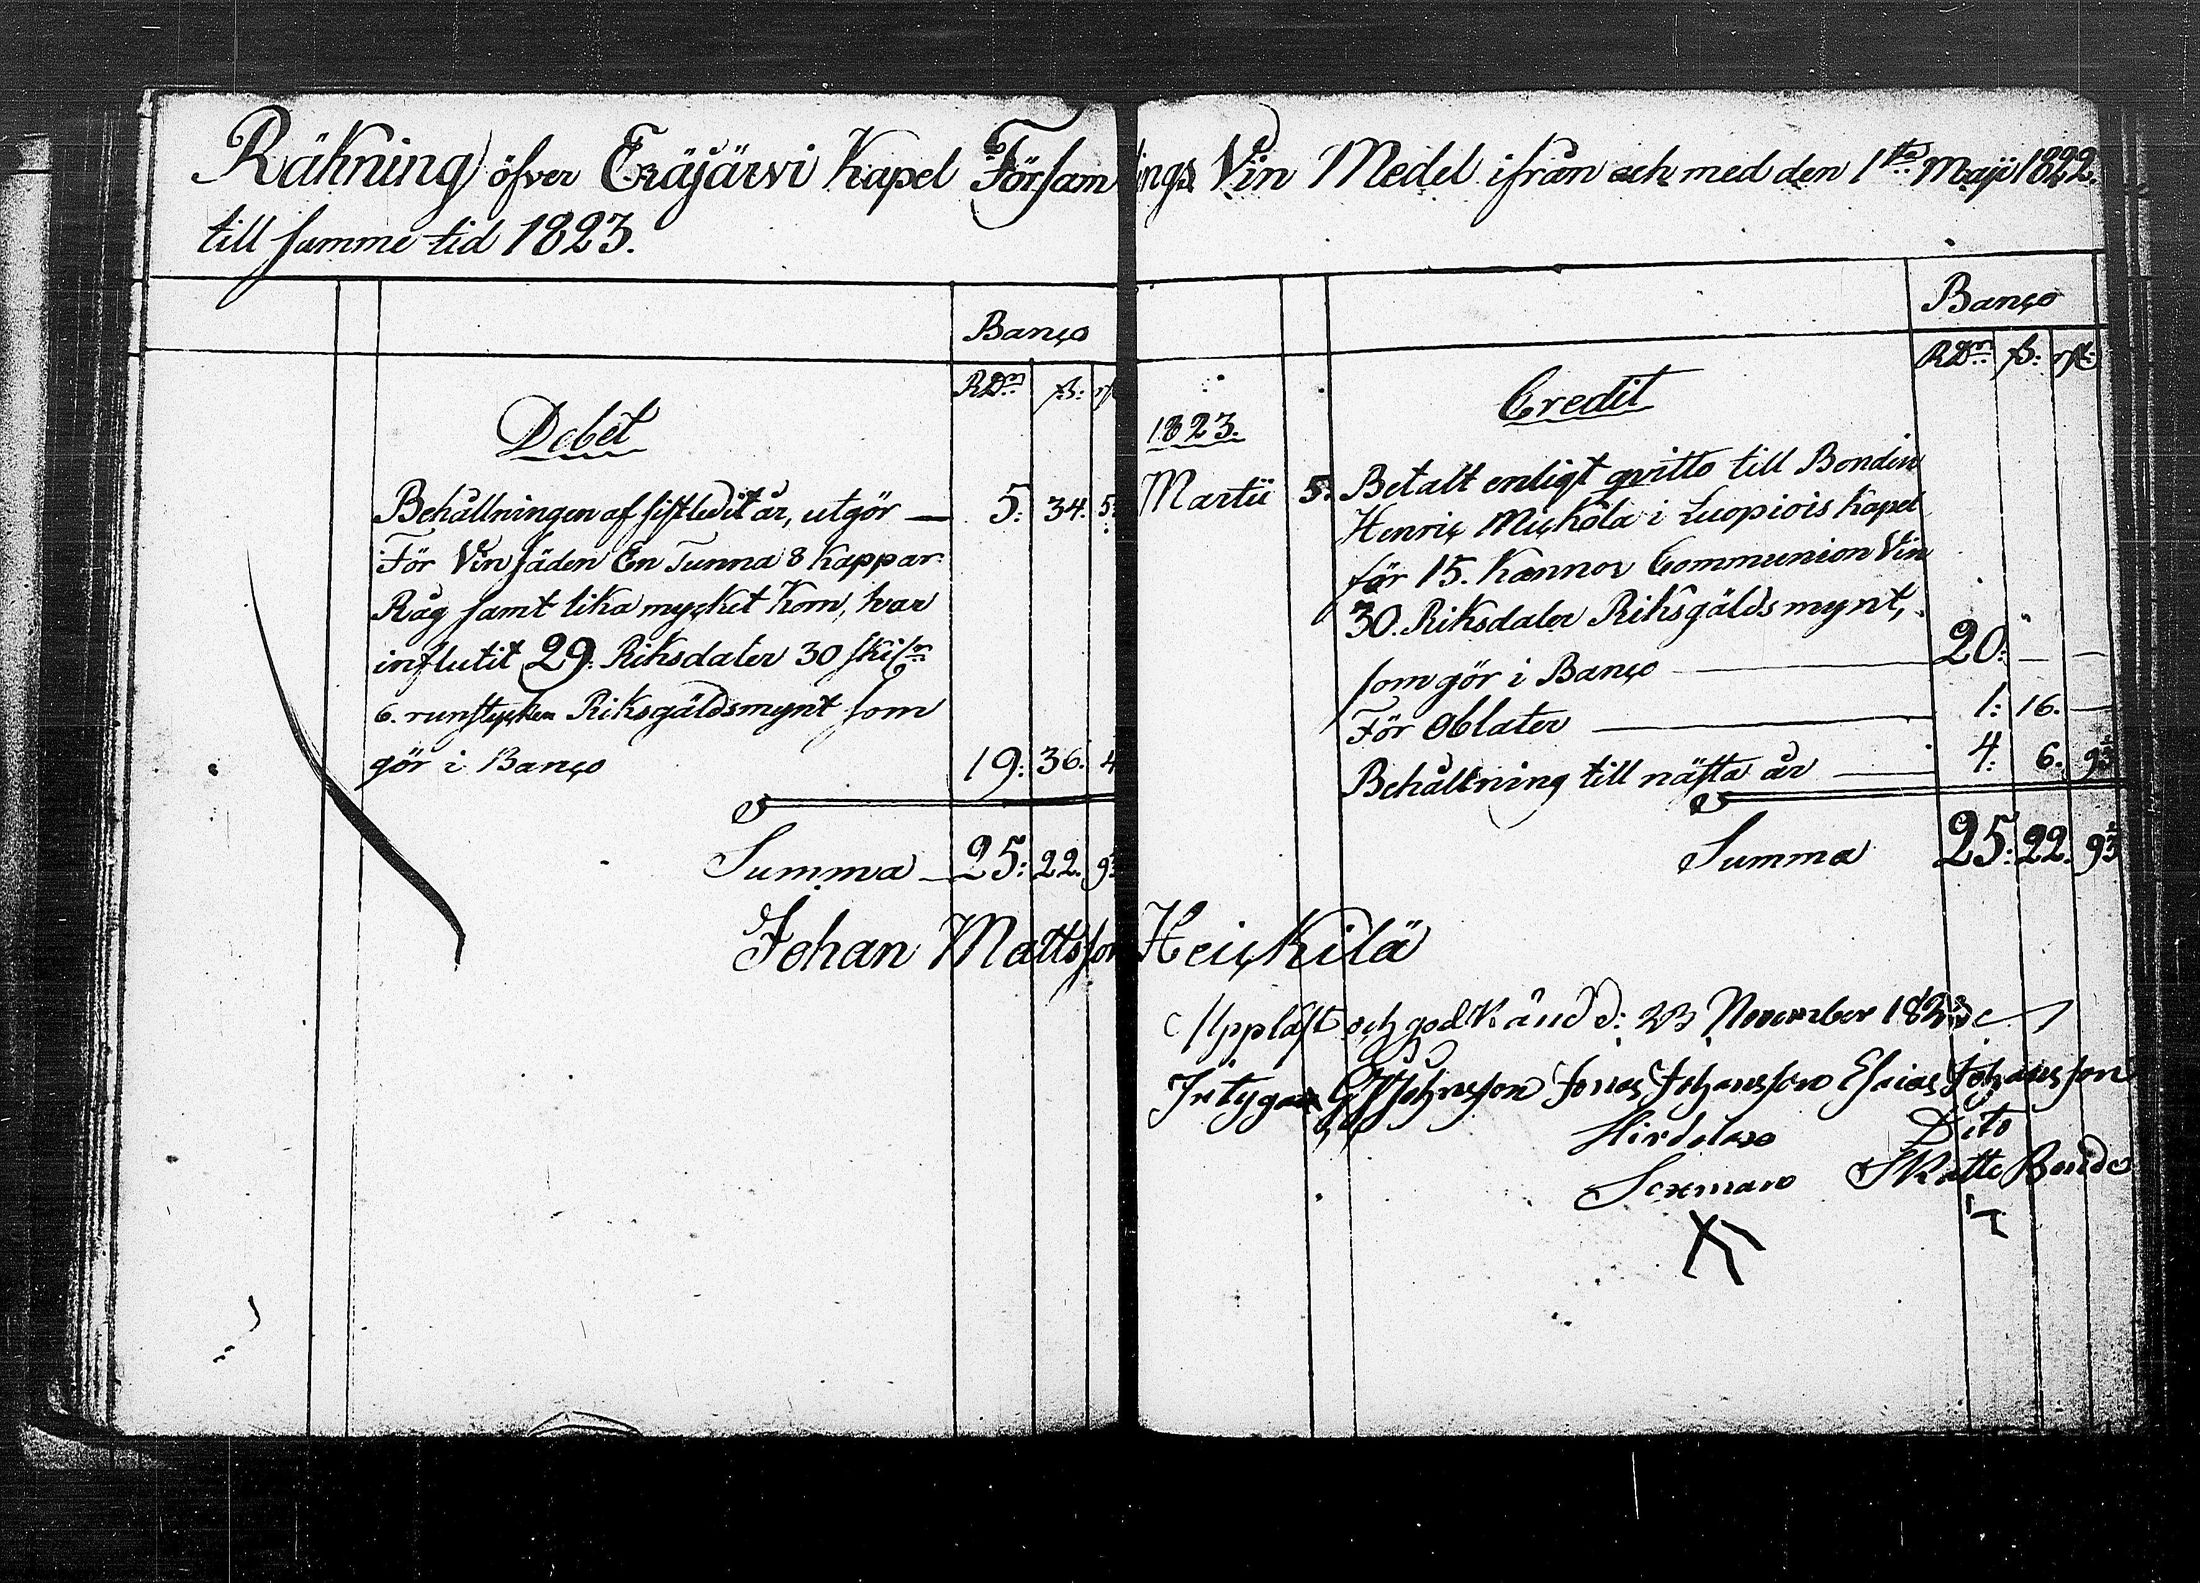 Räkning öfver Eräjärvi Kapel Församlings Vin Medel ifrån och med den 1sta Maji 1822.
till samme tid 1823.
Banco
RDr ß: rst
Debet
Behållningen af sistledit år, utgör — 5: 34. 5
För Vin säden En Tunna 8 Kappar
Råg samt lika mycket Korn, har
influtit 29: Riksdaler 30 skilr
6. runstycken Riksgäldsmynt som
gör i Banco 19: 36. 4
Summa — 25: 22. 9
Banco
RDr ß: rst:
Credit
1823.
Martii 5. Betalt enligt qvitto till Bonden
Henric Mickola i Luopiois Kapel
för 15. Kannor Communion Vin
30. Riksdaler Riksgälds mynt,
som gör i Banco — 20: — —
För Oblater — 1: 16. —
Behållning till nästa år — 4: 6. 9⅓
Summa 25: 22. 9⅓
Johan Mattsson Heickilä
Uppläst och godkänd d: 23 November 1823
Intygar Johnsson Jonas Johansson Esaias Johansson
Dito
Sexman Skatte Bonde